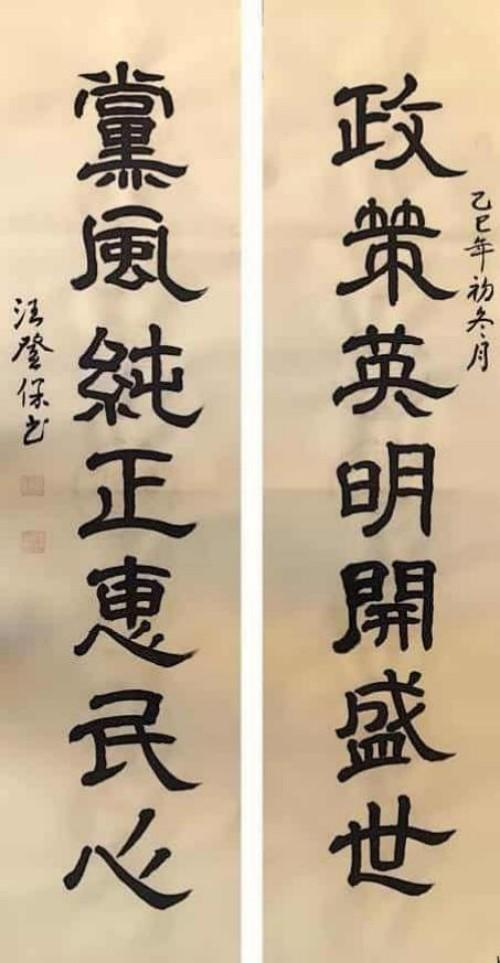 政策英明開盛世
乙巳年初冬月
黨風純正惠民心
汪登保书